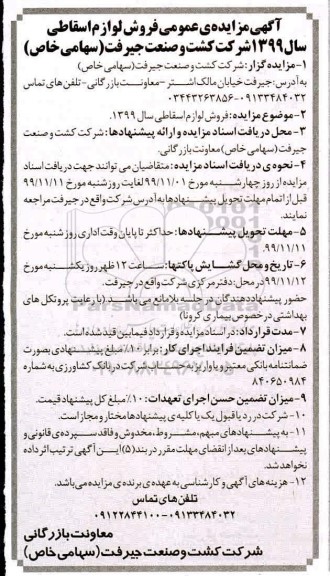 آگهی مزایده‌ی عمومی فروش لوازم اسقاطی
سال ۱۳۹۹ شرکت کشت و صنعت جیرفت (سهامی خاص)
۱-مزایده گزار: شرکت کشت و صنعت جیرفت (سهامی خاص)
به آدرس: جیرفت خیابان مالک اشتر - معاونت بازرگانی-تلفن‌های تماس
۰۹۱۳۳۴۸۴۰۳۲-۰۳۴۴۳۲۶۳۸۵۶
۲-موضوع مزایده: فروش لوازم اسقاطی سال ۱۳۹۹.
۳- محل دریافت اسناد مزایده و ارائه پیشنهادها: شرکت کشت و صنعت
جیرفت (سهامی خاص) معاونت بازرگانی.
۴- نحوه‌ی دریافت اسناد مزایده: متقاضیان می توانند جهت دریافت اسناد
مزایده از روز چهارشنبه مورخ ۹۹/۱۱/۰۱ لغایت روز شنبه مورخ ۹۹/۱۱/۱۱
قبل از اتمام مهلت تحویل پیشنهادها به آدرس شرکت واقع در جیرفت مراجعه
نمایند.
۵- مهلت تحویل پیشنهادها: حداکثر تا پایان وقت اداری روز شنبه مورخ
۹۹/۱۱/۱۱.
۶- تاریخ و محل گشایش پاکتها: ساعت ۱۲ ظهر روز یکشنبه مورخ
۹۹/۱۱/۱۲ در محل: دفتر مرکزی شرکت واقع در جیرفت.
حضور پیشنهاددهندگان در جلسه بلامانع می باشد. (با رعایت پروتکل های
بهداشتی در خصوص بیماری کرونا)
۷- مدت قرارداد: در اسناد مزایده و قرارداد فیمابین قید شده است.
۸- میزان تضمین فرایند اجرای کار: برابر ۱۰٪ مبلغ پیشنهادی بصورت
ضمانتنامه بانکی معتبر و یا واریز به حساب شرکت در بانک کشاورزی به شماره
۸۴۰۶۵۰۹۸۴
۹- میزان تضمین حسن اجرای تعهدات: ۱۰٪ مبلغ کل پیشنهاد قیمت.
۱۰- شرکت در رد یا قبول یک یا کلیه ی پیشنهادها مختار و مجاز است.
۱۱- به پیشنهادهای مبهم، مشروط، مخدوش و فاقد سپرده‌ی قانونی و
پیشنهادهای بعد از انقضای مهلت مقرر در بند (۵) این آگهی ترتیب اثر داده
نخواهد شد.
۱۲- هزینه های آگهی و کارشناسی به عهده ی برنده ی مزایده می باشد.
تلفن های تماس
۰۹۱۳۳۴۸۴۰۳۲-۰۹۱۲۲۸۴۴۱۰۰
معاونت بازرگانی
شرکت کشت و صنعت جیرفت (سهامی خاص)